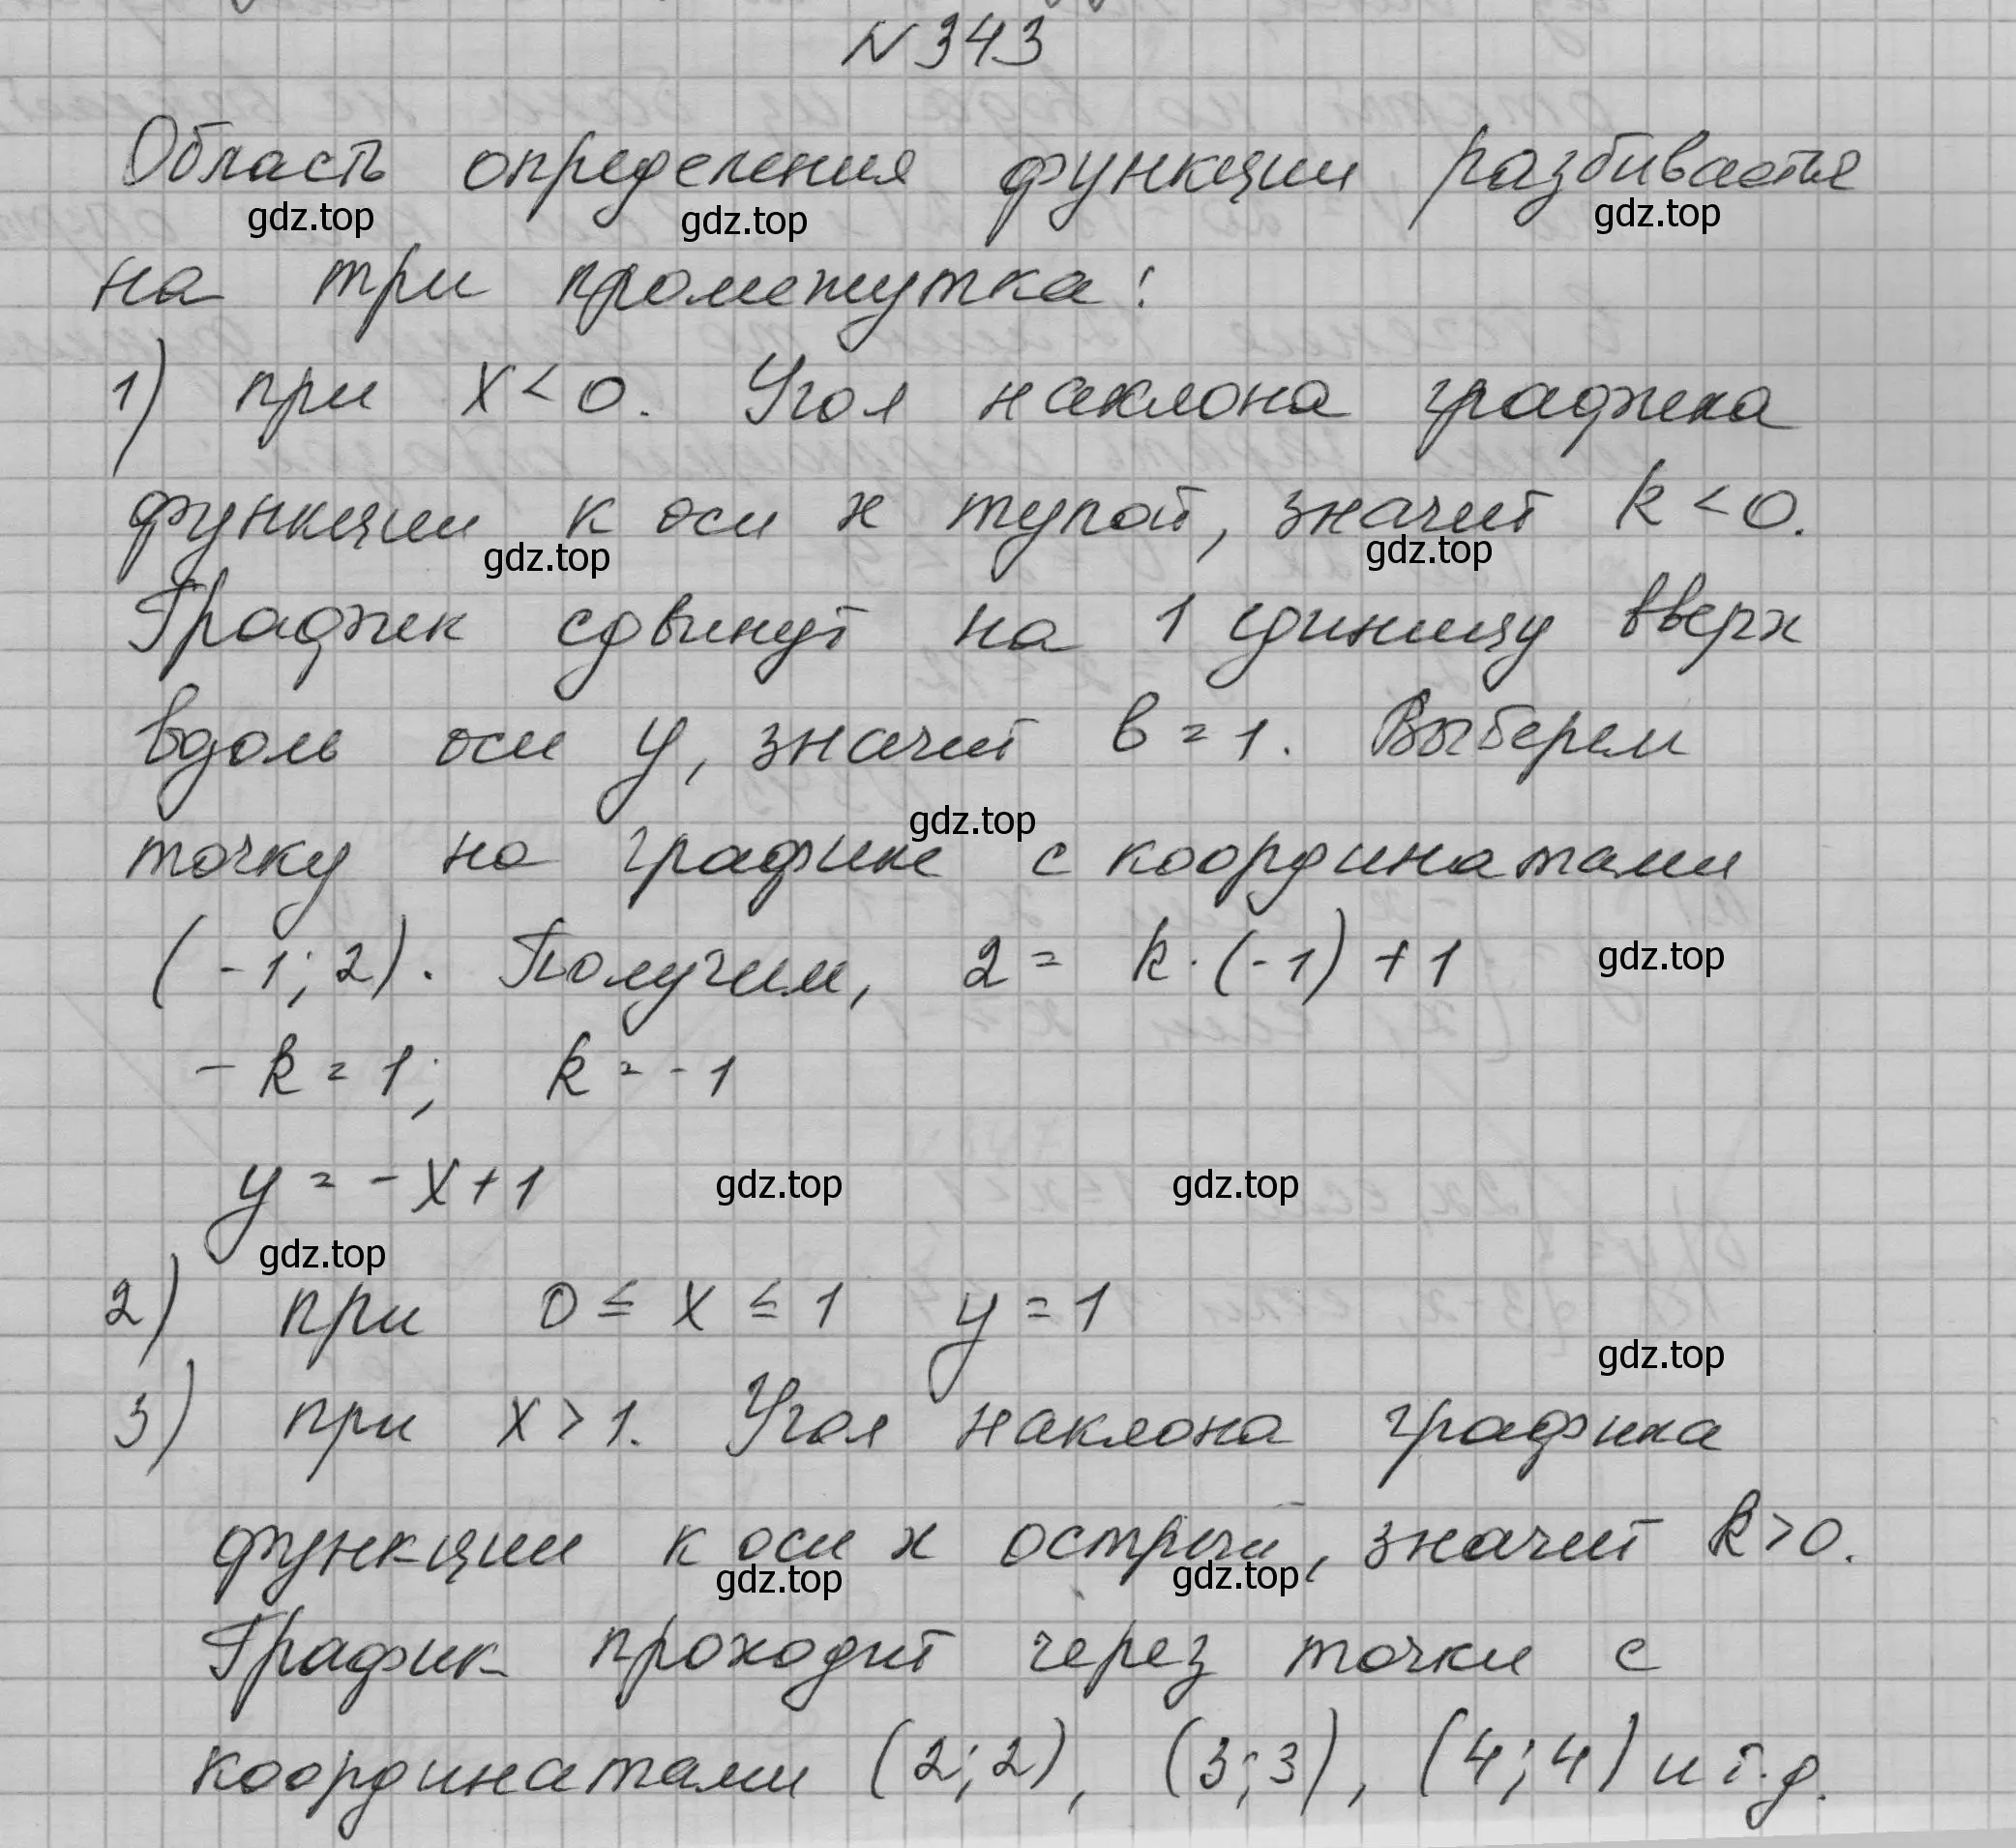 N 343
Область определения функции разбивается
gdz.top gdz.top gdz.top
на три промежутка:
1) при x < 0. Угол наклона графика
функции к оси x тупой, значит k < 0.
gdz.top gdz.top
График сдвинут на 1 единицу вверх
вдоль оси y, значит b = 1. Выберем
gdz.top
точку на графике с координатами
(-1; 2). Получим, 2 = k · (-1) + 1 gdz.top
- k = 1; k = - 1
y = - x + 1 gdz.top gdz.top
gdz.top
2) при 0 ≤ x ≤ 1 y = 1
gdz.top
3) при x > 1. Угол наклона графика
функции к оси x острый, значит k > 0.
gdz.top gdz.top
График проходит через точки с
координатами (2; 2), (3; 3), (4; 4) и т.д.